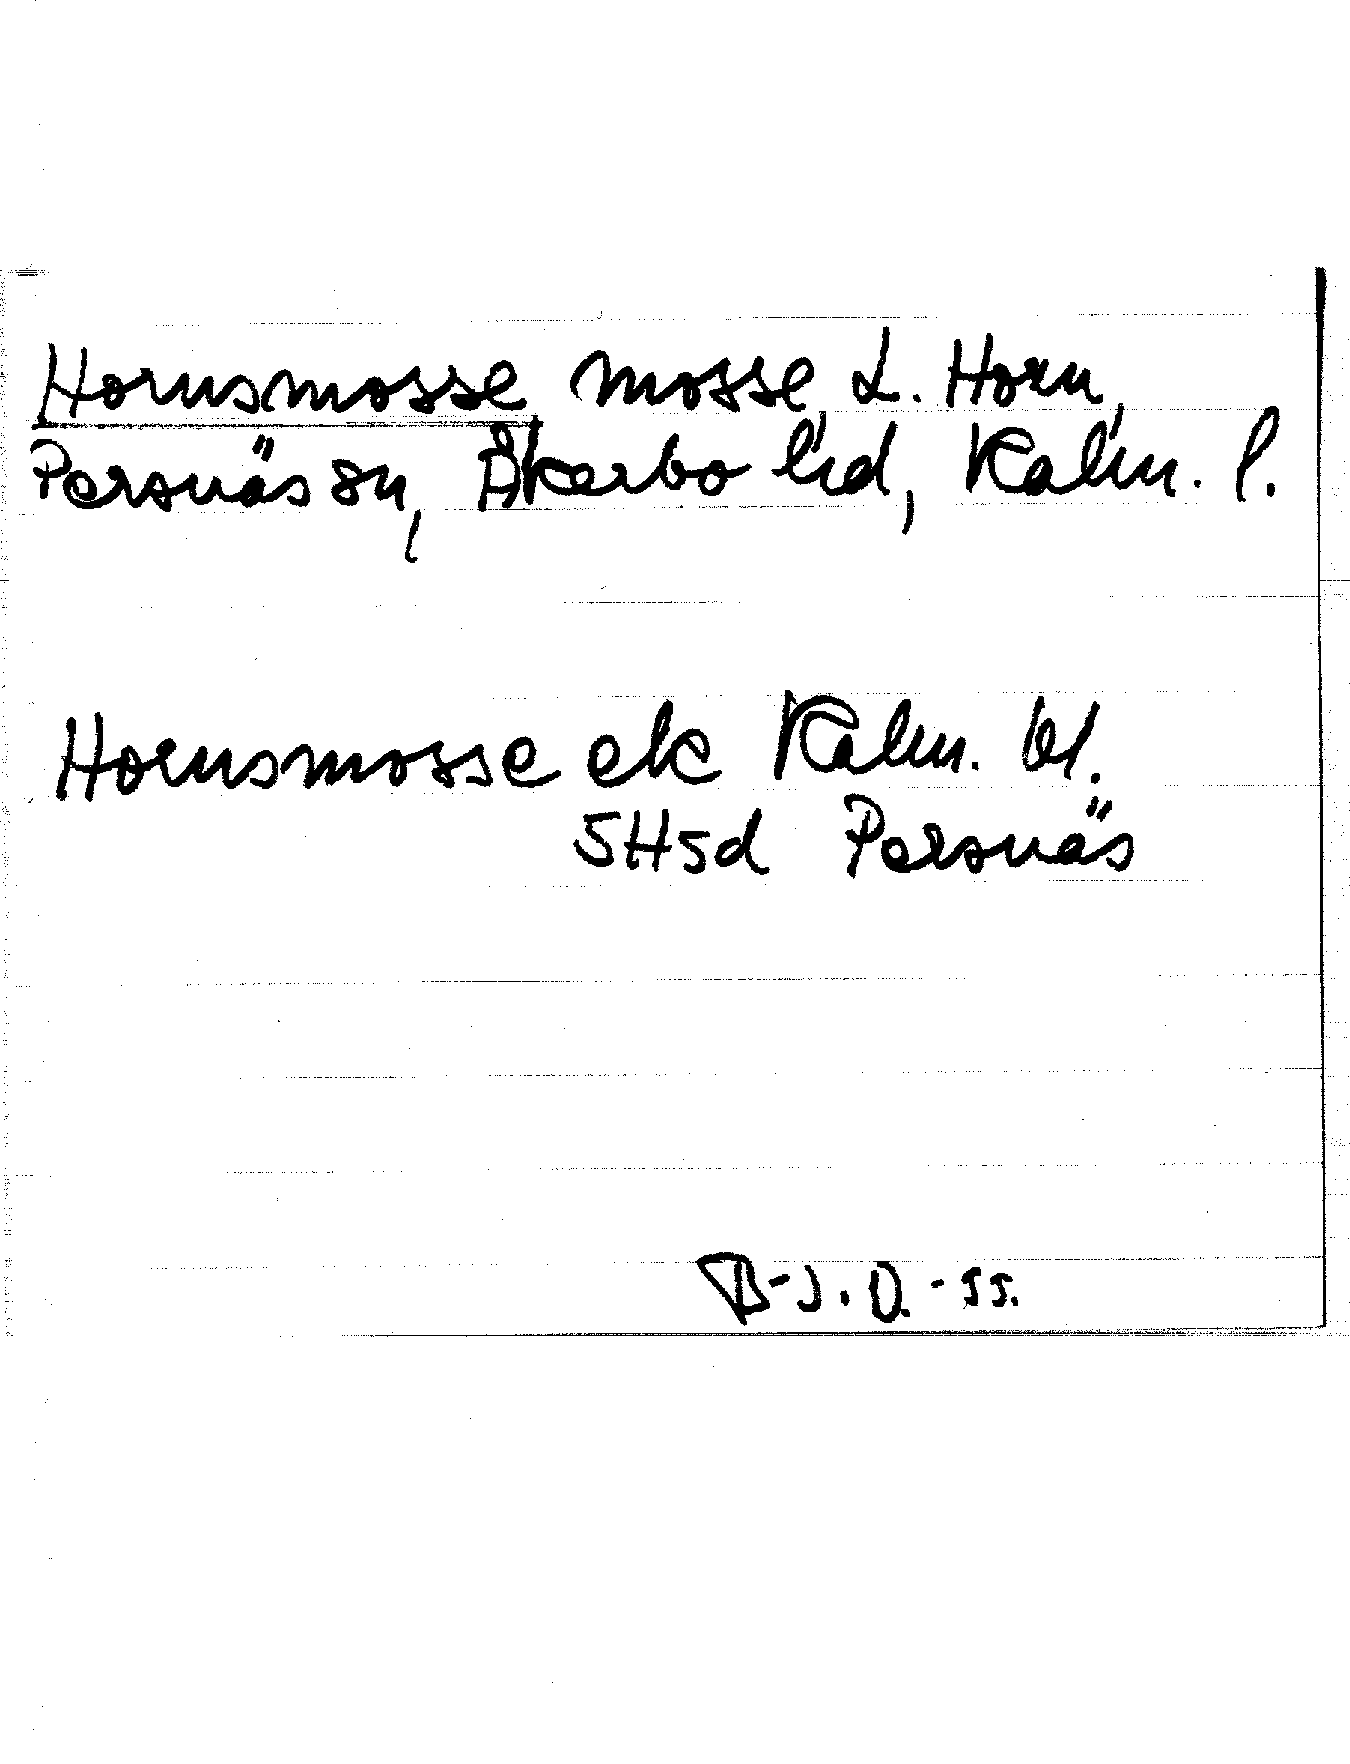 Hornsmosse, mosse, L. Horn,
Persnäs sn, Åkerbo hd, Kalm. l.
Hornsmosse ek Kalm. bl.
5H5d Persnäs
B-J. O. -55.